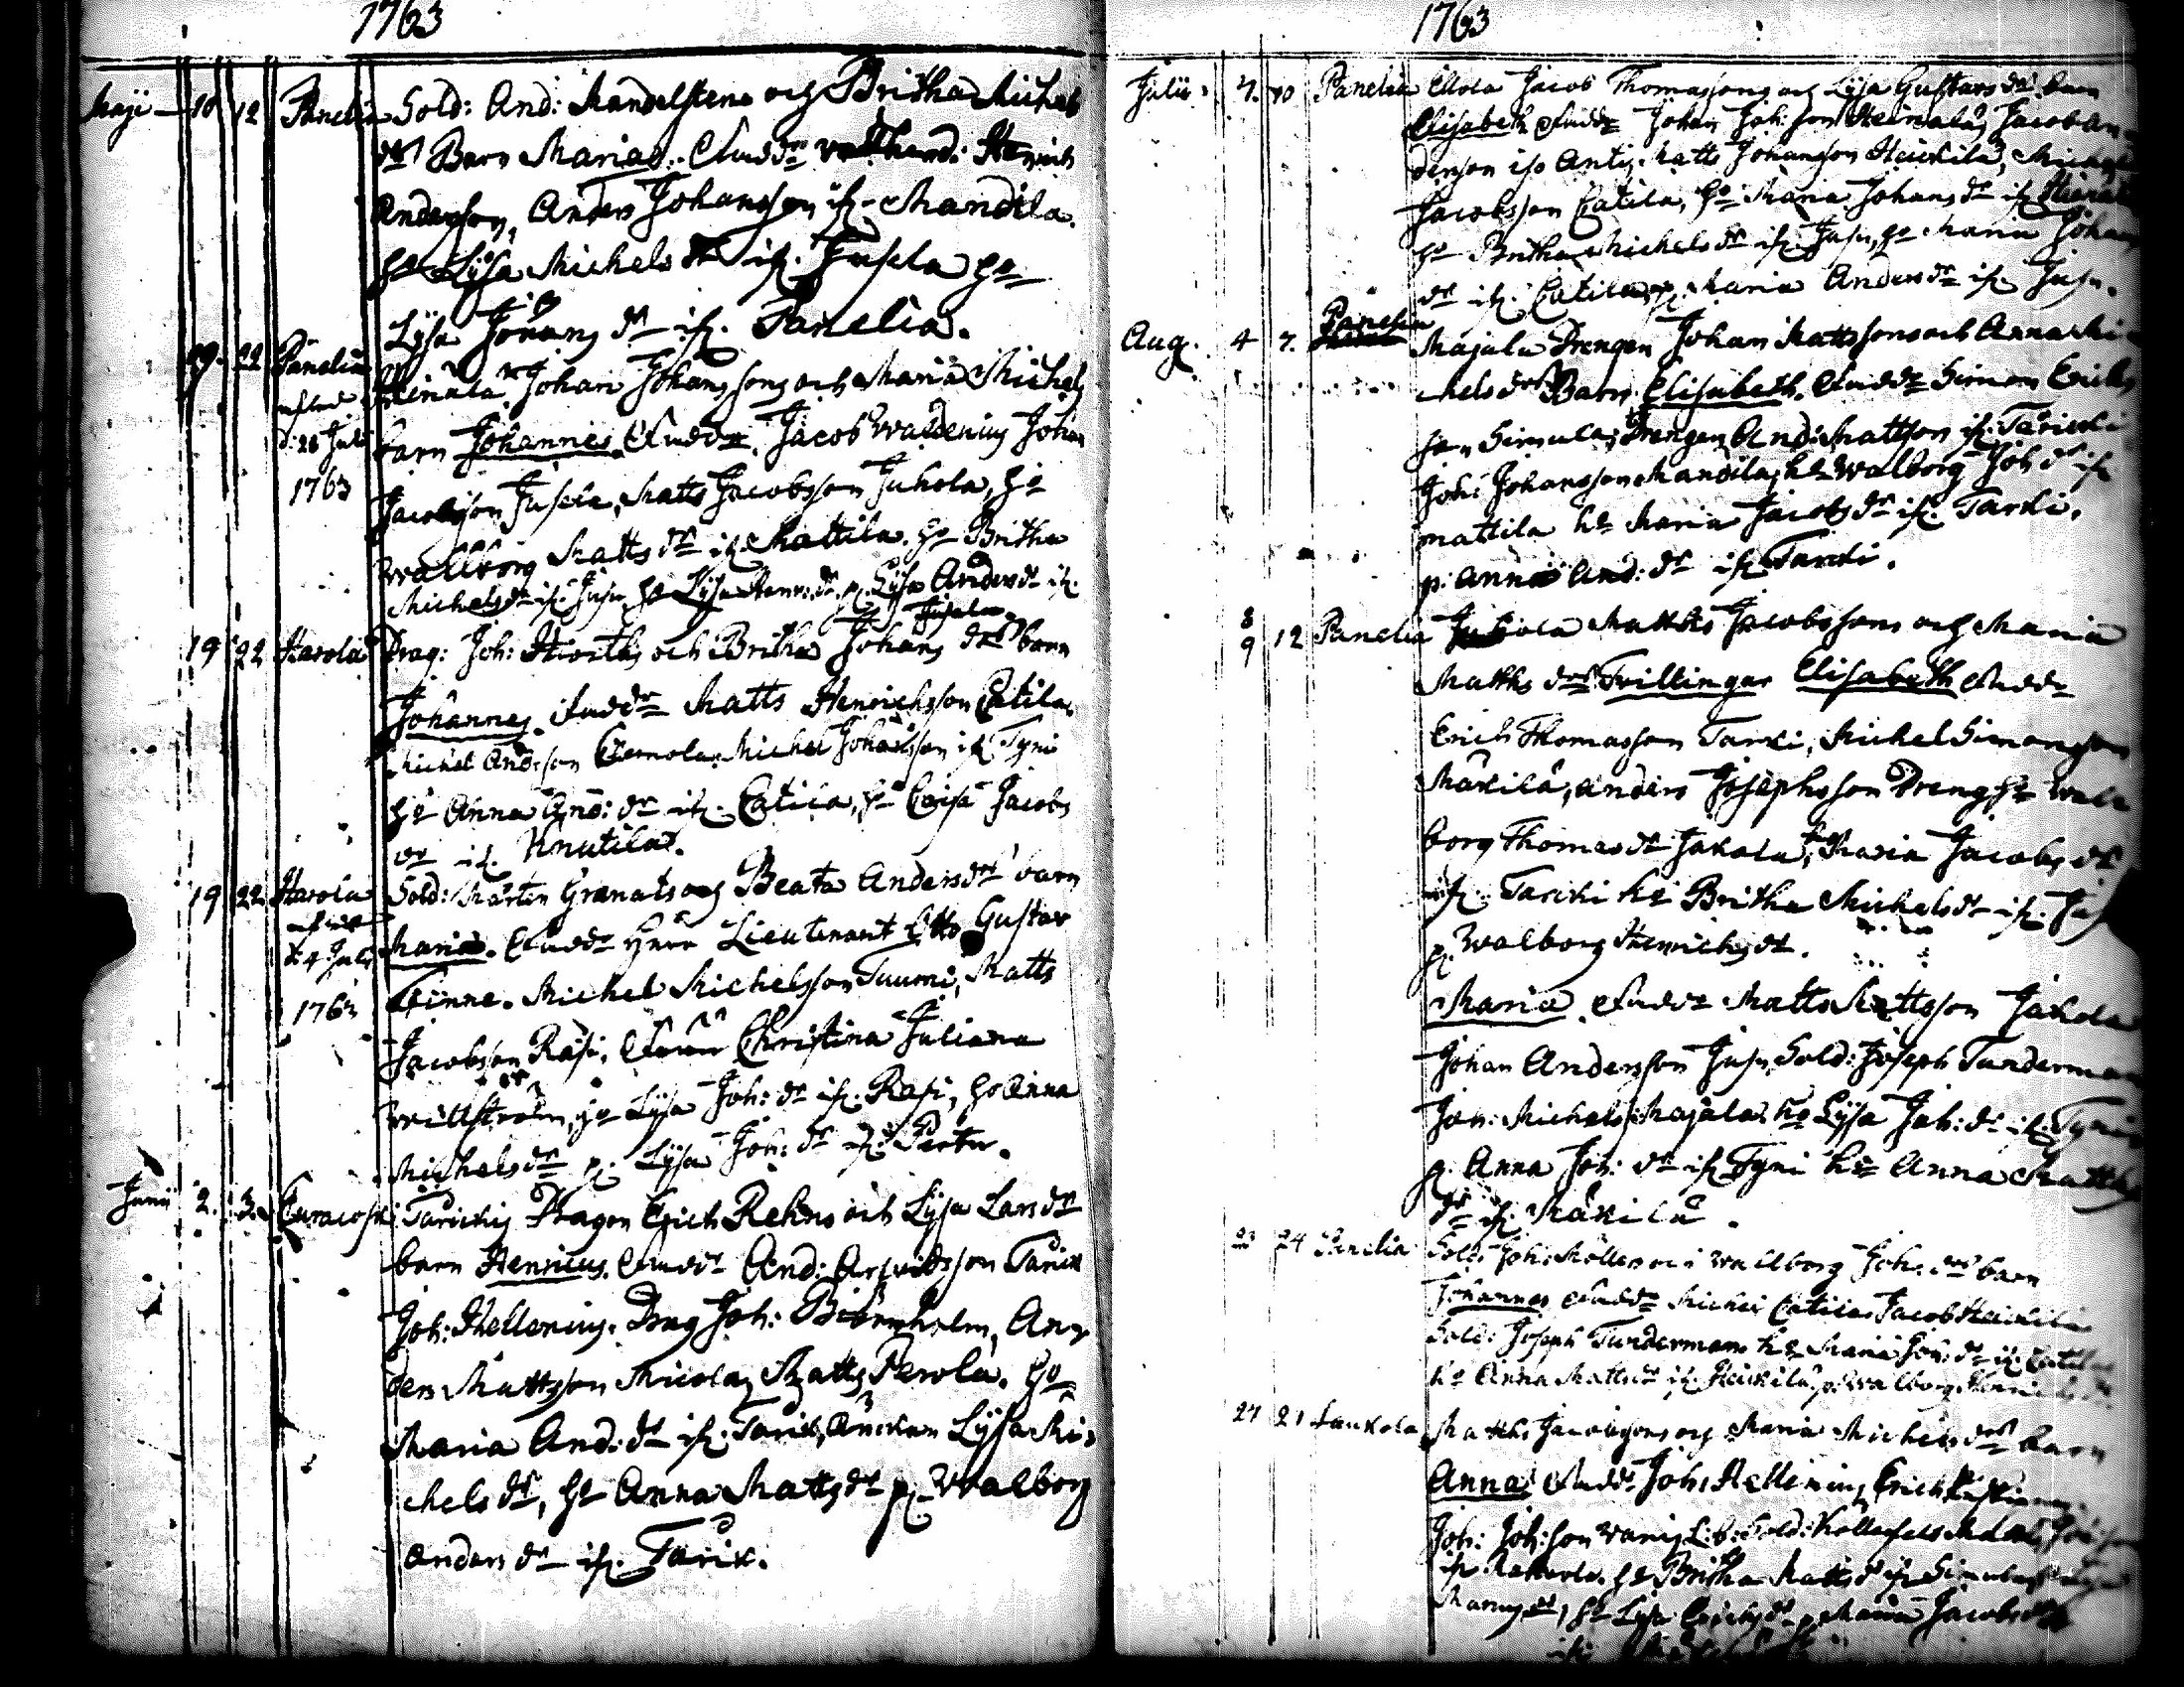 1763
Maji 10 12 Panelia Sold: And: Mandelstens och Britha Michels
drs Barn Maria. Faddr Henrich
Andersson, Anders Johansson ifr. Mandila.
hu Lysa Michels dr ifr. Jusela hu
Lysa Johans dr ifr. Panelia.
19 22 Panelia Heinala Johan Johanssons och Maria Michels
barn Johannes Faddr Jacob Waldenius Johan
d: 28 Juli
1763
Jacobsson Jusela, Matts Jacobsson Juhola, hu
Walborg Matts dr ifr Mattila. hu Britha
Michelsdr ifr: Jusu, hu Lysa Henr: dr. p. Lysa Andersdr ifr.
Jusela.
19 22 Harola Drag: Joh: Hiorts och Britha Johans drs barn
Johannes. Faddr Matts Henrichsson Catila
Michel Andersson Michel Johansson ifr Tyni
hu Anna And: dr ifr. Catila, hu Caisa Jacobs
dr if. Knutila.
19 22 Harola Sold: Mårten Granats och Beata Anders drs barn
Maria. Faddr Herr Lieutenant Otto Gustav
d: 4 Juli
1763
Finne. Michel Michelsson Tuumi, Matts
Jacobsson Räsi, Christina Juliana
Willström, hu Lysa Joh: dr ifr. Rasi, hu Anna
Michelsdr p. Lysa Joh: dr
Junii 2. 3. Euracoski Tarickis Dragon Erich Rehns och Lysa Lars dr
barn Henricus. Faddr And: Arfvidsson Tarick
Joh: Hellenius. Drag Joh: Biörnholm, An-
ders Mattsson Micola, Matts Perola. hu
Maria And: dr ifr. Tarick, Änckan Lysa Mi-
chels dr, hu Anna Matts dr p. Walborg
Anders dr ifr. Tarick.
1763
Julii 7. 10 Panelia Ellola Jacob Thomassons och Lysa Gustavs drs barn
Elisabeth Faddr Johan Joh: son Heinala, Jacob An-
dersson ifr Anti, Matts Johansson Heickilä, Michel
Jacobsson Catila, hu Maria Johans dr ifr Heinala
hu Britha Michels dr ifr. Jusu, hu Maria Johans
dr ifr. Catila, p. Maria Anders dr ifr Jusu.
Aug. 4 7. Panelia Majala Drengen Johan Mattssons och Anna Mi-
chels drs Barn Elisabeth. Faddr Simon Erichs
son Simula; Drengen And: Mattsson ifr. Taricki
Joh: Johansson Mandila, hu Walborg Joh dr ifr
mattila hu Maria Jacobs dr ifr. Tarcki.
p: Anna And: dr ifr Tarcki.
8
9 12 Panelia Jakola Matths Jacobssons och Maria
Matths drs Tvillingar Elisabeth Faddr
Erich Thomasson Tarcki, Michel Simonsson
Mäkilä, Anders Josephsson Dreng, hu Wal-
borg Thomas dr Jakola, Maria Jacobs dr
ifr. Tarcki hu Britha Michels dr ifr.
p. Walborg Henrichs dr.
Maria Faddr Matts Mattsson Jakola
Johan Andersson Jusu, Sold: Joseph Tunderman
Joh: Michels. Majala. hu Lysa Joh: dr ifr. Tyni
p. Anna Joh: dr ifr Tyni hu Anna Matths
dr ifr. Mäkilä.
23 24 Panelia Sold: Joh: Möllers och Walborg Joh: drs barn
Johannes Faddr Michel Catila, Jacob Heickilä
Sold: Joseph Tunderman hu Maria Joh: dr ifr Catila
hu Anna Matts dr ifr Heickilä, p. Walborg Henrichs dr
27 21 Laukola Matths Jacobssons och Maria Michels drs barn
Anna Faddr Joh: Hellenius, Erich
Joh: Joh: son Sold:
ifr hu Britha Matts dr ifr Simula
hu Lysa Erichs dr, p Maria Jacobs dr